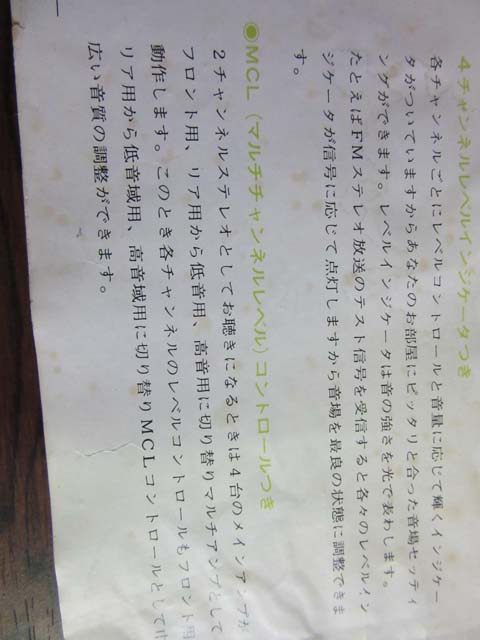 4チャンネルレベルインジケータつき
各チャンネルごとにレベルコントロールと音量に応じて輝くインジケー
タがついていますからあなたのお部屋にピッタリと合った音場セッティ
ングができます。レベルインジケータは音の強さを光で表わします。
たとえばFMステレオ放送のテスト信号を受信すると各々のレベルイン
ジケータが信号に応じて点灯しますから音場を最良の状態に調整できま
す。
◉MCL(マルチチャンネルレベル)コントロールつき
2チャンネルステレオとしてお聴きになるときは4台のメインアンプが
フロント用、リア用から低音用、高音用に切り替りマルチアンプとして
動作します。このとき各チャンネルのレベルコントロールもフロント用
リア用から低音域用、高音域用に切り替りMCLコントロールとして
広い音質の調整ができます。